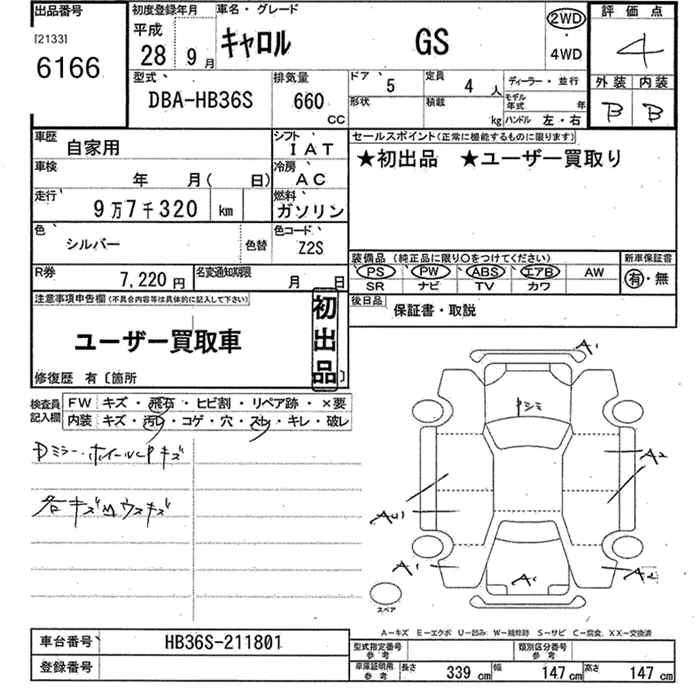 出品番号
[2133]
6166
初度登録年月
平成
28 9月
車名・グレード
キャロル GS
2WD
・
4WD
評価点
4
外装 内装
B B
型式
DBA-HB36S
排気量
660
CC
ドア 5
定員 4 人
ディーラー・並行
形状
積載 kg
モデル年式 年
ハンドル 左・右
車歴
自家用
シフト
IAT
セールスポイント(正常に機能するものに限ります)
★初出品 ★ユーザー買取り
車検
年 月( 日)
冷房
AC
走行
9万7千320 km
燃料
ガソリン
色
シルバー
色替
色コード
Z2S
装備品 (純正品に限り○をつけてください)
PS PW ABS エアB AW
SR ナビ TV カワ
新車保証書
有・無
R券
7,220円
名変通知期限
月 日
後日品
保証書・取説
注意事項申告欄(不具合内容等は具体的に記入して下さい)
ユーザー買取車
初出品
修復歴 有〔箇所 〕
検査員記入欄
FW キズ・飛石・ヒビ割・リペア跡・×要
内装 キズ・汚レ・コゲ・穴・スレ・キレ・破レ
Dミラー・ホイールCPキズ
各キズ凹ウスキズ
A1
Pシミ
A2
AU1
A1
A1
A2
スペア
A―キズ E―エクボ U―凹み W―補修跡 S―サビ C―腐食 XX―交換済
車台番号
HB36S-211801
登録番号
型式指定番号
参考
類別区分番号
参考
車庫証明用
参考
長さ 339 cm 幅 147 cm 高さ 147 cm